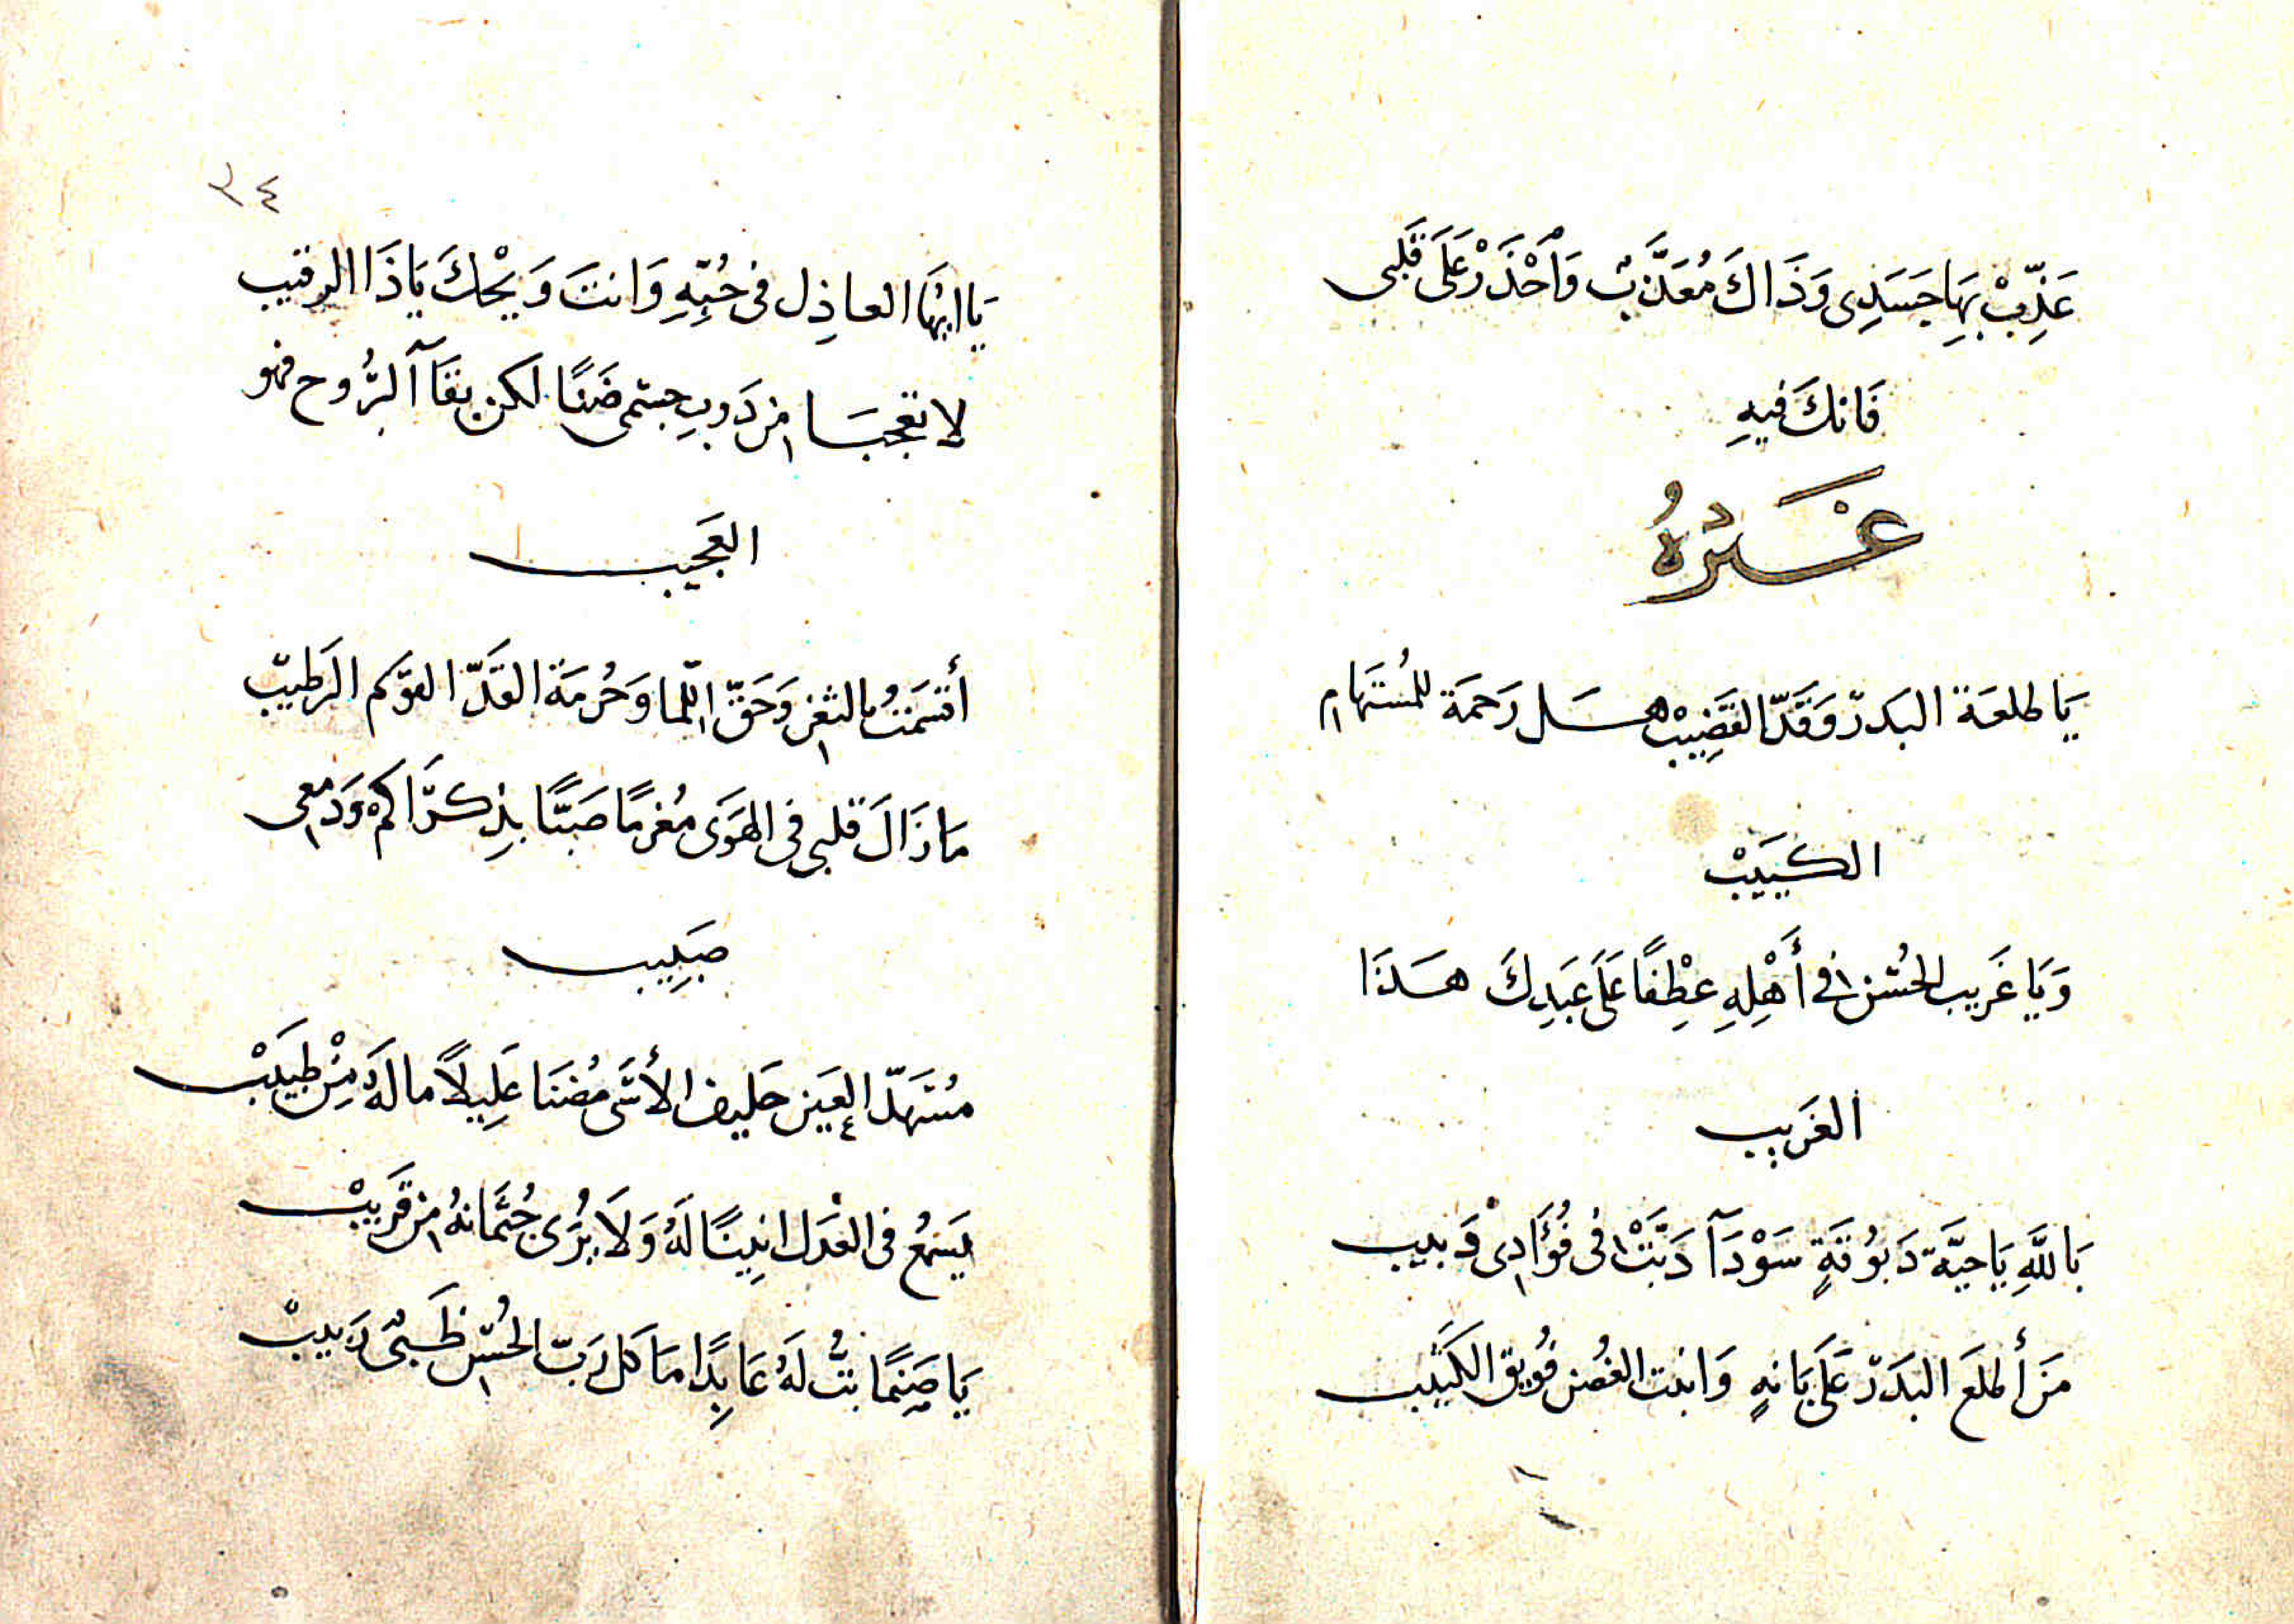 عَذِّبْ بِهَا جَسَدِى وَذَاكَ مُعَذَّبٌ وَاَحْذَرْ عَلَى قَلبى
فَانكَ فيهِ
غَيْرُهُ
يَا طلعَة البَدرّ وَقَدّ القَضِيبْ هَل رَحمَة للمُستَهام
الكييَبْ
وَيَا غَريب الحُسْن فى أَهْلِهِ عِطْفًا عَلَى عَبدِكَ هَذَا
الغَريب
بَاللَّهِ يَا حيَّة دَبوُقَةٍ سَوْدَآ دَبَّتْ فى فُؤَادِىْ دَبيب
مَن أَطلعَ البَدرّ عَلَى بَانهٍ وَانبت الغُصن فُويق الكَثيب
٣٤
يَا ايهَا العاذِل فى حُبِّهِ وَانتَ وَيْحكَ يَاذَا الرقيب
لا تعجبَا من ذَوبِ جسْمى ضَنًا لكن بقَآ الرُّوح فهو
العَجَيب
أقسَمَتُ بالثغر وَحَقّ اللّما وَحُرمَة القَدّ القوَّيم الرَطيبّ
مَا زَالَ قلبى فى الهَوَى مُغرمًا صَبًّا بذِكرَاكمْ وَدَمعى
صَبِيب
مُسَهدّ العَين حَليف الأَسَى مُضنَا عَلِيلاً ما لَهُ مِنْ طَبيبْ
يَسَمعُ فى العَذل انِينًا لَهُ وَلاَ يُرَى جُثمَانهُ من قَريبْ
يَا صَنِمًا بتُّ لَهُ عَابِدًا مَا كَل رَبّ الحُسْن ظَبىٌ رَبيبْ